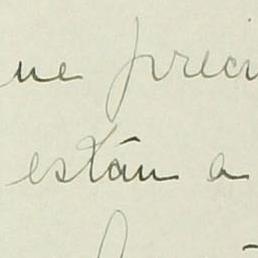 ue preci
están a